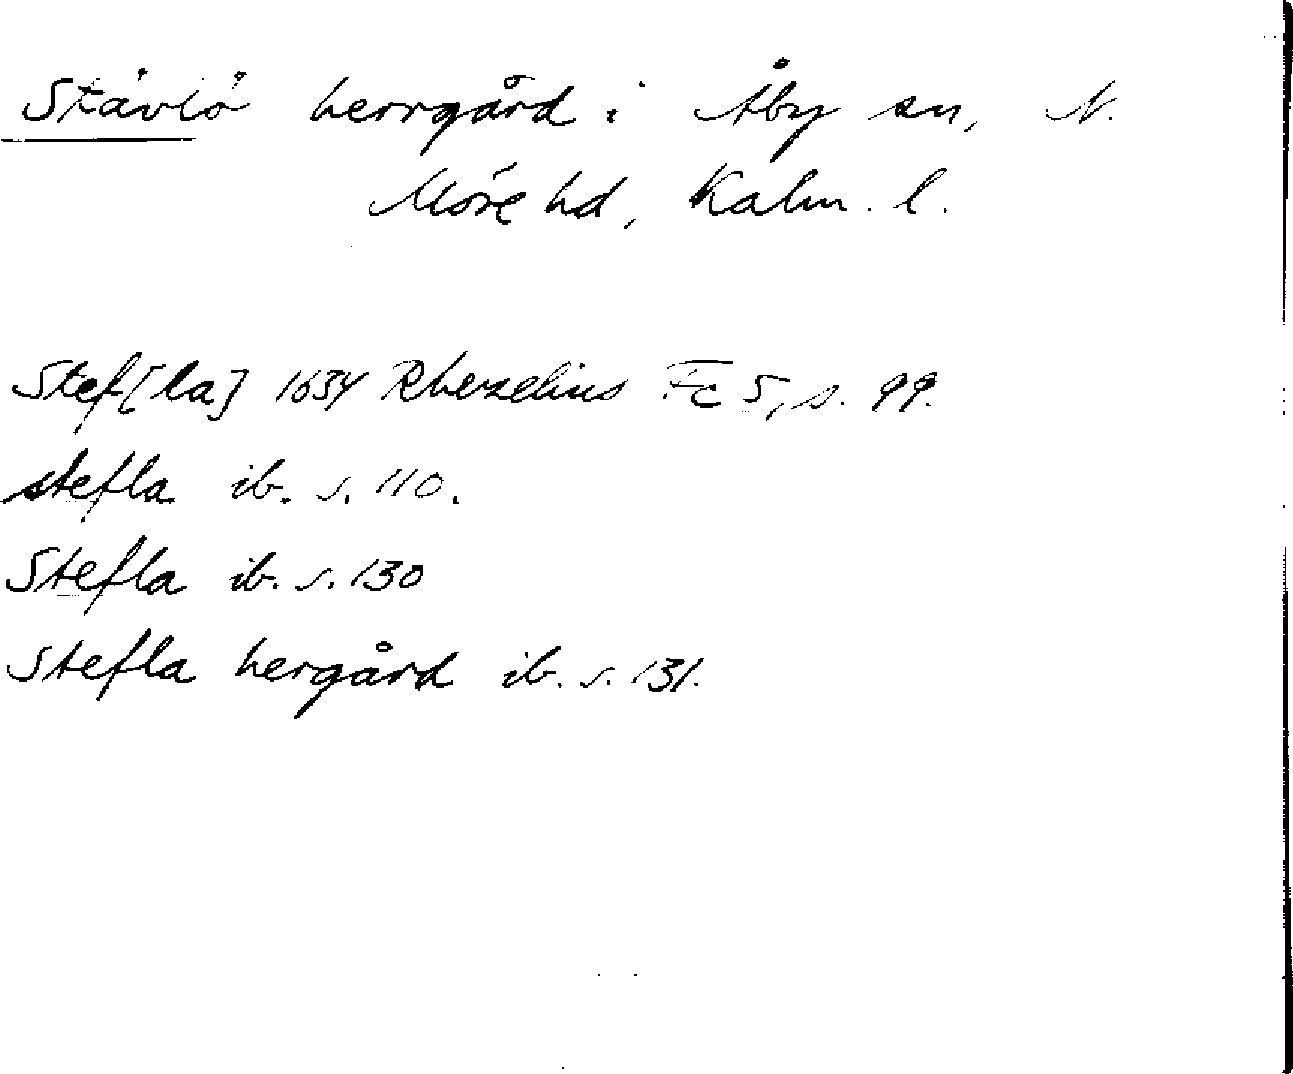 Stävlö herrgård i Åby sn, N.
Möre hd, Kalm. l.
Stef[la] 1634 Rhezelius Fc 5, s. 99.
stefla ib. s. 110.
Stefla ib. s. 130
Stefla hergård ib. s. 131.